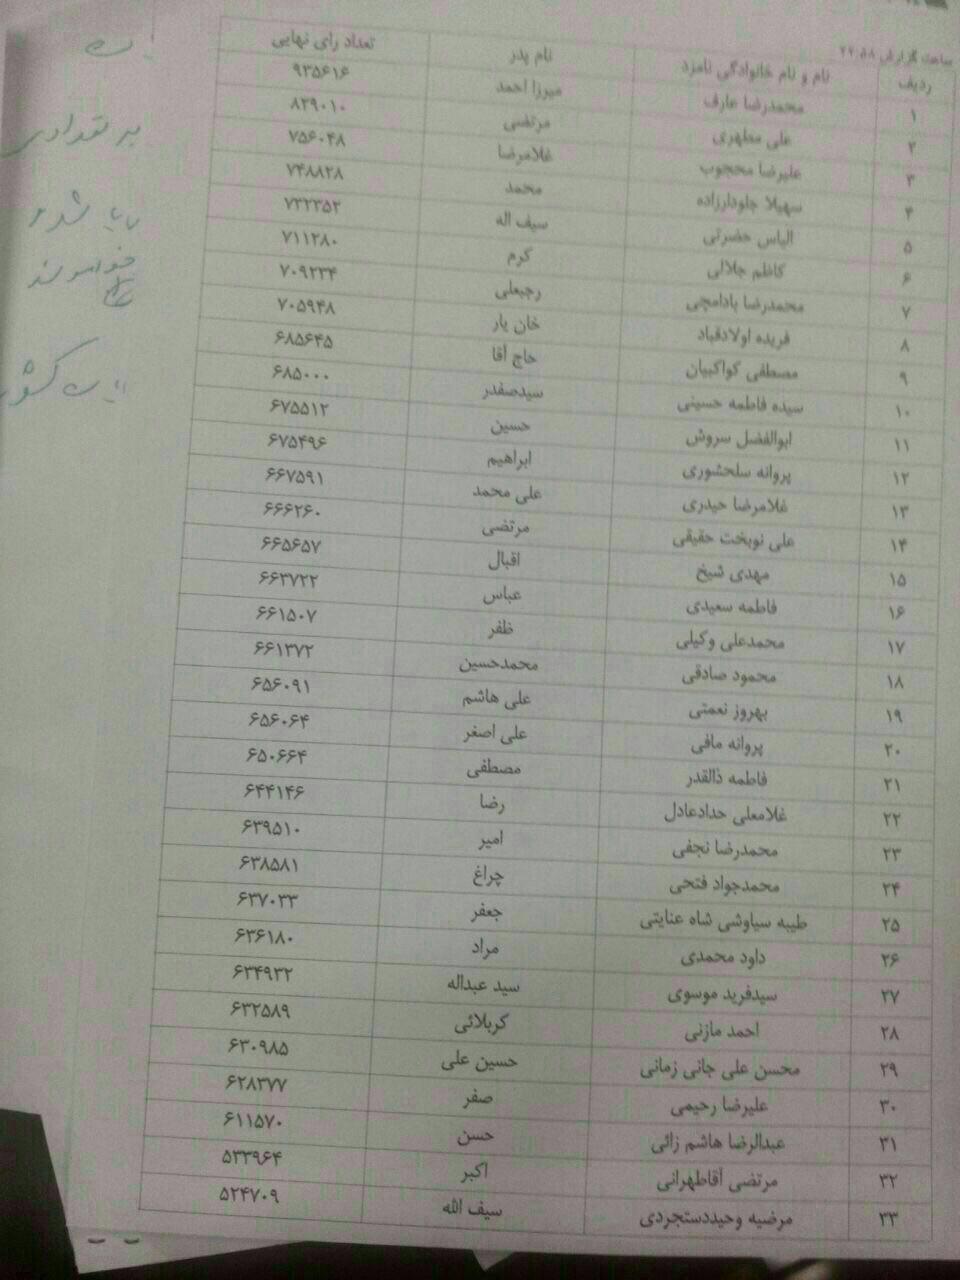 ساعت گزارش ۲۲:۵۸
ردیف نام و نام خانوادگی نامزد نام پدر تعداد رای نهایی
۱ محمدرضا عارف میرزا احمد ۹۳۵۶۱۶
۲ علی مطهری مرتضی ۸۲۹۰۱۰
۳ علیرضا محجوب غلامرضا ۷۵۶۰۴۸
۴ سهیلا جلودارزاده محمد ۷۴۸۸۲۸
۵ الیاس حضرتی سیف اله ۷۳۲۳۵۲
۶ کاظم جلالی کرم ۷۱۱۲۸۰
۷ محمدرضا بادامچی رجبعلی ۷۰۹۲۳۴
۸ فریده اولادقباد خان یار ۷۰۵۹۴۸
۹ مصطفی کواکبیان حاج آقا ۶۸۵۶۴۵
۱۰ سیده فاطمه حسینی سیدصفدر ۶۸۵۰۰۰
۱۱ ابوالفضل سروش حسین ۶۷۵۵۱۲
۱۲ پروانه سلحشوری ابراهیم ۶۷۵۴۹۶
۱۳ غلامرضا حیدری علی محمد ۶۶۷۵۹۱
۱۴ علی نوبخت حقیقی مرتضی ۶۶۶۲۶۰
۱۵ مهدی شیخ اقبال ۶۶۵۶۵۷
۱۶ فاطمه سعیدی عباس ۶۶۳۷۲۲
۱۷ محمدعلی وکیلی ظفر ۶۶۱۵۰۷
۱۸ محمود صادقی محمدحسین ۶۶۱۳۷۲
۱۹ بهروز نعمتی علی هاشم ۶۵۶۰۹۱
۲۰ پروانه مافی علی اصغر ۶۵۶۰۶۴
۲۱ فاطمه ذالقدر مصطفی ۶۵۰۶۶۴
۲۲ غلامعلی حدادعادل رضا ۶۴۴۱۴۶
۲۳ محمدرضا نجفی امیر ۶۳۹۵۱۰
۲۴ محمدجواد فتحی چراغ ۶۳۸۵۸۱
۲۵ طیبه سیاوشی شاه عنایتی جعفر ۶۳۷۰۳۳
۲۶ داود محمدی مراد ۶۳۶۱۸۰
۲۷ سیدفرید موسوی سید عبداله ۶۳۴۹۳۲
۲۸ احمد مازنی کربلائی ۶۳۲۵۸۹
۲۹ محسن علی جانی زمانی حسین علی ۶۳۰۹۸۵
۳۰ علیرضا رحیمی صفر ۶۲۸۳۷۷
۳۱ عبدالرضا هاشم زائی حسن ۶۱۱۵۷۰
۳۲ مرتضی آقاطهرانی اکبر ۵۳۳۹۶۴
۳۳ مرضیه وحیددستجردی سیف الله ۵۲۴۷۰۹